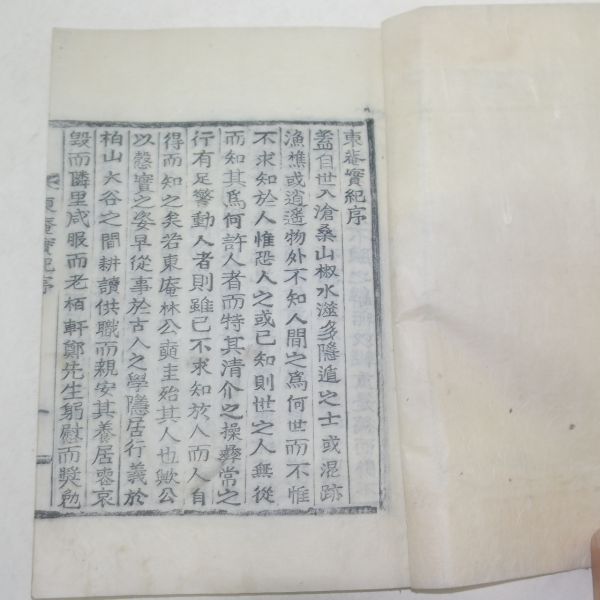 東菴實紀序
蓋自世入滄桑山椒水滋多隱遁之士或混跡
漁樵或逍遙物外不知人間之爲何世而不惟
不求知於人惟恐人之或已知則世之人無從
而知其爲何許人者而特其清介之操彜常之
行有足警動人者則雖已不求知於人而人自
得而知之矣若東庵林公奭圭殆其人也歟公
以慤實之姿早從事於古人之學隱居行義於
柏山大谷之間耕讀供職而親安其養居喪哀
毁而隣里咸服而老栢軒鄭先生躬慰而奬勉
東菴實紀序